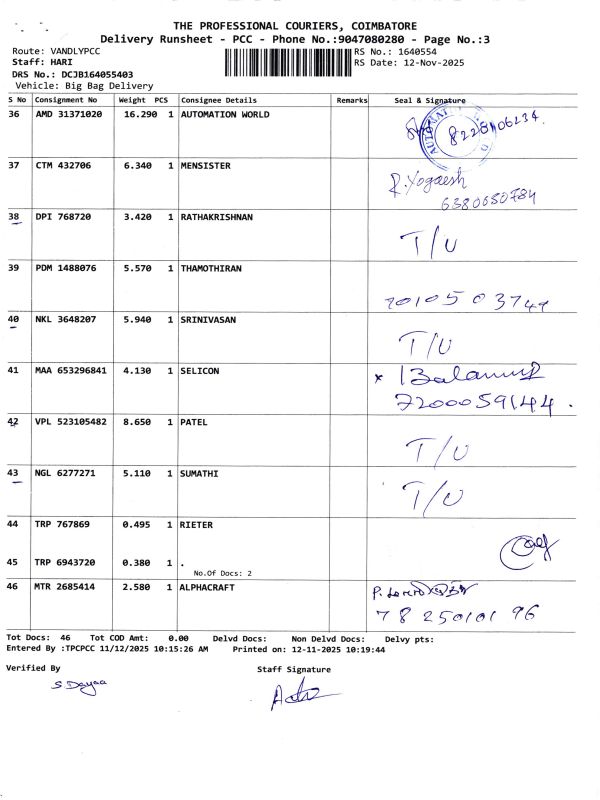 THE PROFESSIONAL COURIERS, COIMBATORE
Delivery Runsheet - PCC - Phone No.:9047080280 - Page No.:3
Route: VANDLYPCC
RS No.: 1640554
Staff: HARI
RS Date: 12-Nov-2025
DRS No.: DCJB164055403
Vehicle: Big Bag Delivery
S No Consignment No Weight PCS Consignee Details Remarks Seal & Signature
36 AMD 31371020 16.290 1 AUTOMATION WORLD
37 CTM 432706 6.340 1 MENSISTER R.Yogaesh
6380650784
38 DPI 768720 3.420 1 RATHAKRISHNAN T/U
39 PDM 1488076 5.570 1 THAMOTHIRAN
40 NKL 3648207 5.940 1 SRINIVASAN T/U
41 MAA 653296841 4.130 1 SELICON
7200059144.
42 VPL 523105482 8.650 1 PATEL T/U
43 NGL 6277271 5.110 1 SUMATHI T/U
44 TRP 767869 0.495 1 RIETER
45 TRP 6943720 0.380 1 .
No.Of Docs: 2
46 MTR 2685414 2.580 1 ALPHACRAFT
78 250101 96
Tot Docs: 46 Tot COD Amt: 0.00 Delvd Docs: Non Delvd Docs: Delvy pts:
Entered By :TPCPCC 11/12/2025 10:15:26 AM Printed on: 12-11-2025 10:19:44
Verified By Staff Signature
S.Dayaa